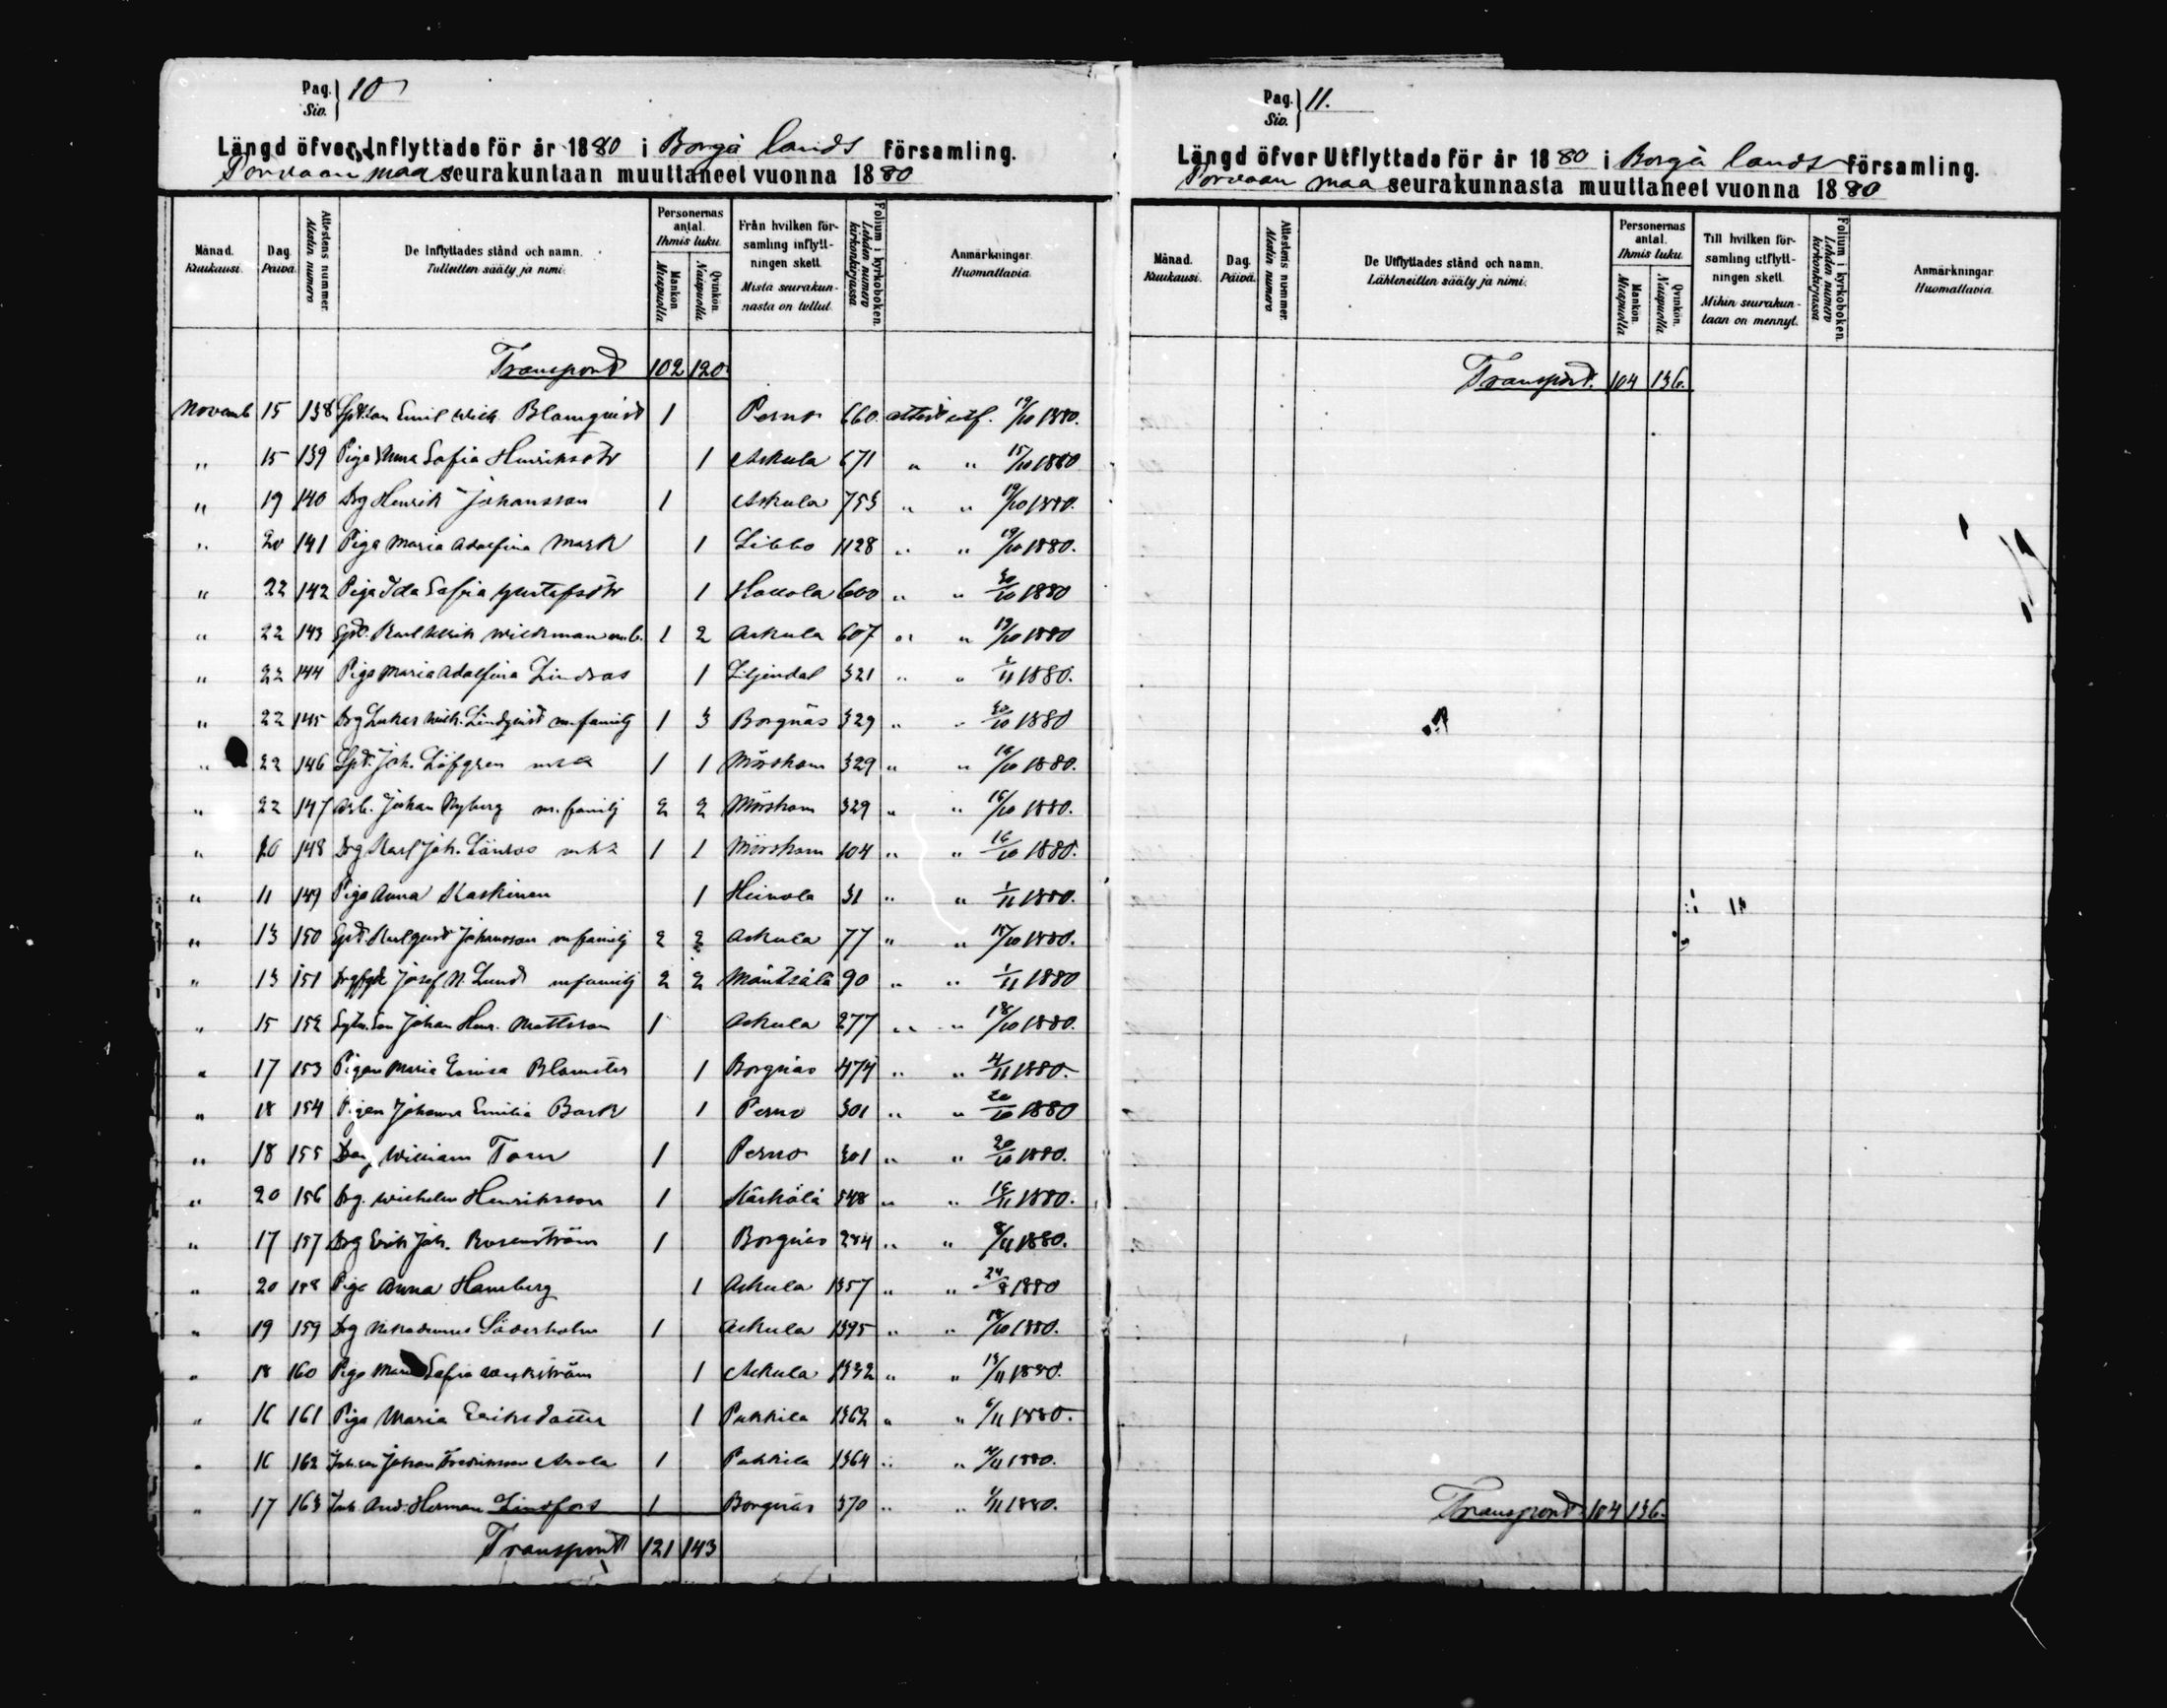 Pag. Siv. } 10
Längd öfver Inflyttade för år 1880 i Borgå lands församling.
Porvoon maa seurakuntaan muuttaneet vuonna 1880
Månad. Kuukausi. Dag. Päivä. Attestens nummer. Atestin numero De Inflyttades stånd och namn. Tulleitten sääty ja nimi. Personernas antal. Ihmis luku. Mankön. Miespuolia Qvinkön. Naispuolia Från hvilken församling inflyttningen skett. Mistä seurakunnasta on tullut. Folium i kyrkoboken. Lehden numero kirkonkirjassa Anmärkningar. Huomattavia.
Transport 102 120
Novemb 15 138 Emil Wilh. Blomqvist 1 Perno 660 attest utf. 19/10 1880.
" 15 139 Piga Anna Sofia Henriksdtr 1 Askula 671 " " 15/10 1880
" 19 140 Drg Henrik Johansson 1 Askula 753 " " 19/10 1880.
" 20 141 Piga Maria Adolfina Mark 1 Sibbo 1128 " " 19/10 1880.
" 22 142 Piga Ida Sofia Gustafsdtr 1 Hollola 600 " " 30/10 1880
" 22 143 Karl Ulrik Wickman 1 2 Askula 607 " " 19/10 1880
" 22 144 Piga Maria Adolfina Lindroos 1 Liljendal 321 " " /11 1880.
" 22 145 Drg Lukas Wilh. Lindqvist m. familj 1 3 Borgnäs 329 " " 30/10 1880
" 22 146 Joh. Löfgren 1 1 Mörskom 329 " " 16/10 1880.
" 22 147 Arb. Johan Nyberg m. familj 2 2 Mörskom 329 " " 16/10 1880.
" 20 148 Drg Karl Joh. 1 1 Mörskom 104 " " 16/10 1880.
" 11 149 Piga Anna Kaskinen 1 Heinola 31 " " 1/11 1880.
" 13 150 Karl Gust Johansson m familj 2 2 Askula 77 " " 18/10 1880.
" 13 151 Josef N. Lund m familj 2 2 Mäntsälä 90 " " 1/11 1880
" 15 152 Johan Henr. Mattsson 1 Askula 277 " " 18/10 1880.
" 17 153 Pigan Maria Lovisa Blomster 1 Borgnäs 474 " " 4/11 1880.
" 18 154 Pigan Johanna Emilia Bark 1 Perno 301 " " 20/10 1880
" 18 155 William Torn 1 Perno 301 " " 20/10 1880.
" 20 156 Drg. Wilhelm Henriksson 1 Kärkölä 548 " " /11 1880.
" 17 157 Drg Erik Joh. Rosenström 1 Borgnäs 284 " " 8/11 1880.
" 20 158 Piga Anna Hamberg 1 Askula 1357 " " 24/8 1880
" 19 159 Drg Nikodemus Söderholm 1 Askula 1395 " " 18/10 1880.
" 18 160 Piga Sofia 1 Askula 1332 " " 13/11 1880.
" 16 161 Piga Maria Eriksdotter 1 Pukkila 1362 " " 6/11 1880.
" 16 162 Johan Arola 1 Pukkila 1364 " " /11 1880.
" 17 163 And. Herman Lindfors 1 Borgnäs 370 " " 1/11 1880.
Transport 121 143
Pag. Siv. } 11.
Längd öfver Utflyttade för år 1880 i Borgå lands församling.
Porvoon maa seurakunnasta muuttaneet vuonna 1880
Månad. Kuukausi. Dag. Päivä. Attestens nummer. Atestin numero De Utflyttades stånd och namn. Lähteneitten sääty ja nimi. Personernas antal. Ihmis luku. Mankön. Miespuolia Qvinkön. Naispuolia Till hvilken församling utflyttningen skett. Mihin seurakuntaan on mennyt. Folium i kyrkoboken. Lehden numero kirkonkirjassa Anmärkningar. Huomattavia.
Transport. 104 136.
Transport 104 136.